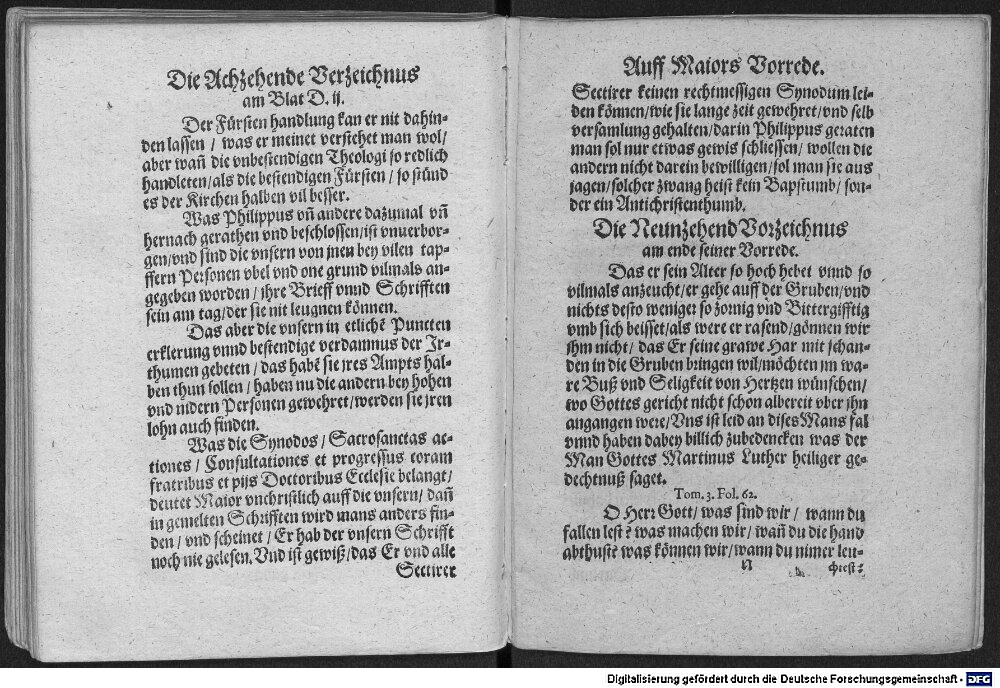 Die Achzehende Verzeichnus
am Blat D. ij.
Der Fürsten handlung kan er nit dahin-
den lassen / was er meinet verstehet man wol /
aber wañ die vnbestendigen Theologi so redlich
handleten / als die bestendigen Fürsten / so stünd
es der Kirchen halben vil besser.
Was Philippus vñ andere dazumal vñ
hernach gerathen vnd beschlossen / ist vnuerbor-
gen / vnd sind die vnsern von jnen bey vilen tap-
ffern Personen vbel vnd one grund vilmals an-
gegeben worden / jhre Brieff vnnd Schrifften
sein am tag / der sie nit leugnen können.
Das aber die vnsern in etlichē Puncten
erklerung vnnd bestendige verdamnus der Ir-
thumen gebeten / das habē sie jres Ampts hal-
ben thun sollen / haben nu die andern bey hohen
vnd nidern Personen gewehret / werden sie jren
lohn auch finden.
Was die Synodos / Sacrosanctas ac-
tiones / Consultationes et progressus coram
fratribus et pijs Doctoribus Ecclesie belangt /
deutet Maior vnchristlich auff die vnsern / dañ
in gemelten Schrifften wird mans anders fin-
den / vnd scheinet / Er hab der vnsern Schrifft
noch nie gelesen. Vnd ist gewiß / das Er vnd alle
Sectirer
Auff Maiors Vorrede.
Sectirer keinen rechtmessigen Synodum lei-
den können / wie sie lange zeit gewehret / vnd selb
versamlung gehalten / darin Philippus geraten
man sol nur etwas gewis schliessen / wollen die
andern nicht darein bewilligen / sol man sie aus
jagen / solcher zwang heist kein Bapstumb / son-
der ein Antichristenthumb.
Die Neunzehend Vorzeichnus
am ende seiner Vorrede.
Das er sein Alter so hoch hebet vnnd so
vilmals anzeucht / er gehe auff der Gruben / vnd
nichts desto weniger so zornig vñd Bittergifftig
vmb sich beisset / als were er rasend / gönnen wir
jhm nicht / das Er seine grawe Har mit schan-
den in die Gruben bringen wil / möchten jm wa-
re Buß vnd Seligkeit von Hertzen wünschen /
wo Gottes gericht nicht schon albereit vber jhn
angangen were / Vns ist leid an dises Mans fal
vnnd haben dabey billich zubedencken was der
Man Gottes Martinus Luther heiliger ge-
dechtnuß saget.
Tom. 3. Fol. 62.
O Herr Gott / was sind wir / wann du
fallen lest? was machen wir / wañ du die hand
abthust? was können wir / wann du nimer leu-
N chtest?
Digitalisierung gefördert durch die Deutsche Forschungsgemeinschaft - DFG